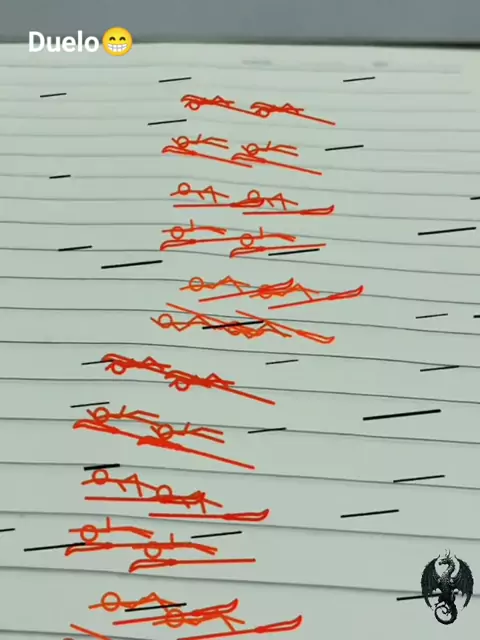 Duelo😁